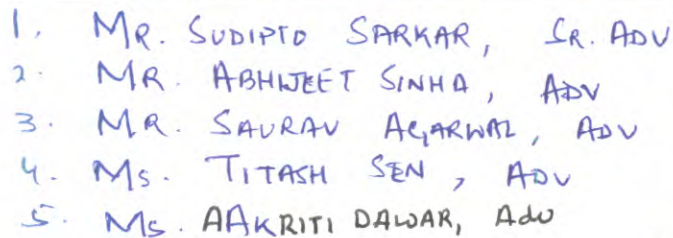 1. MR. SUDIPTO SARKAR, SR. ADV
2. MR. ABHIJEET SINHA, ADV
3. MR. SAURAV AGARWAL, ADV
4. Ms. TITASH SEN, ADV
5. Ms. AAKRITI DAWAR, Adv